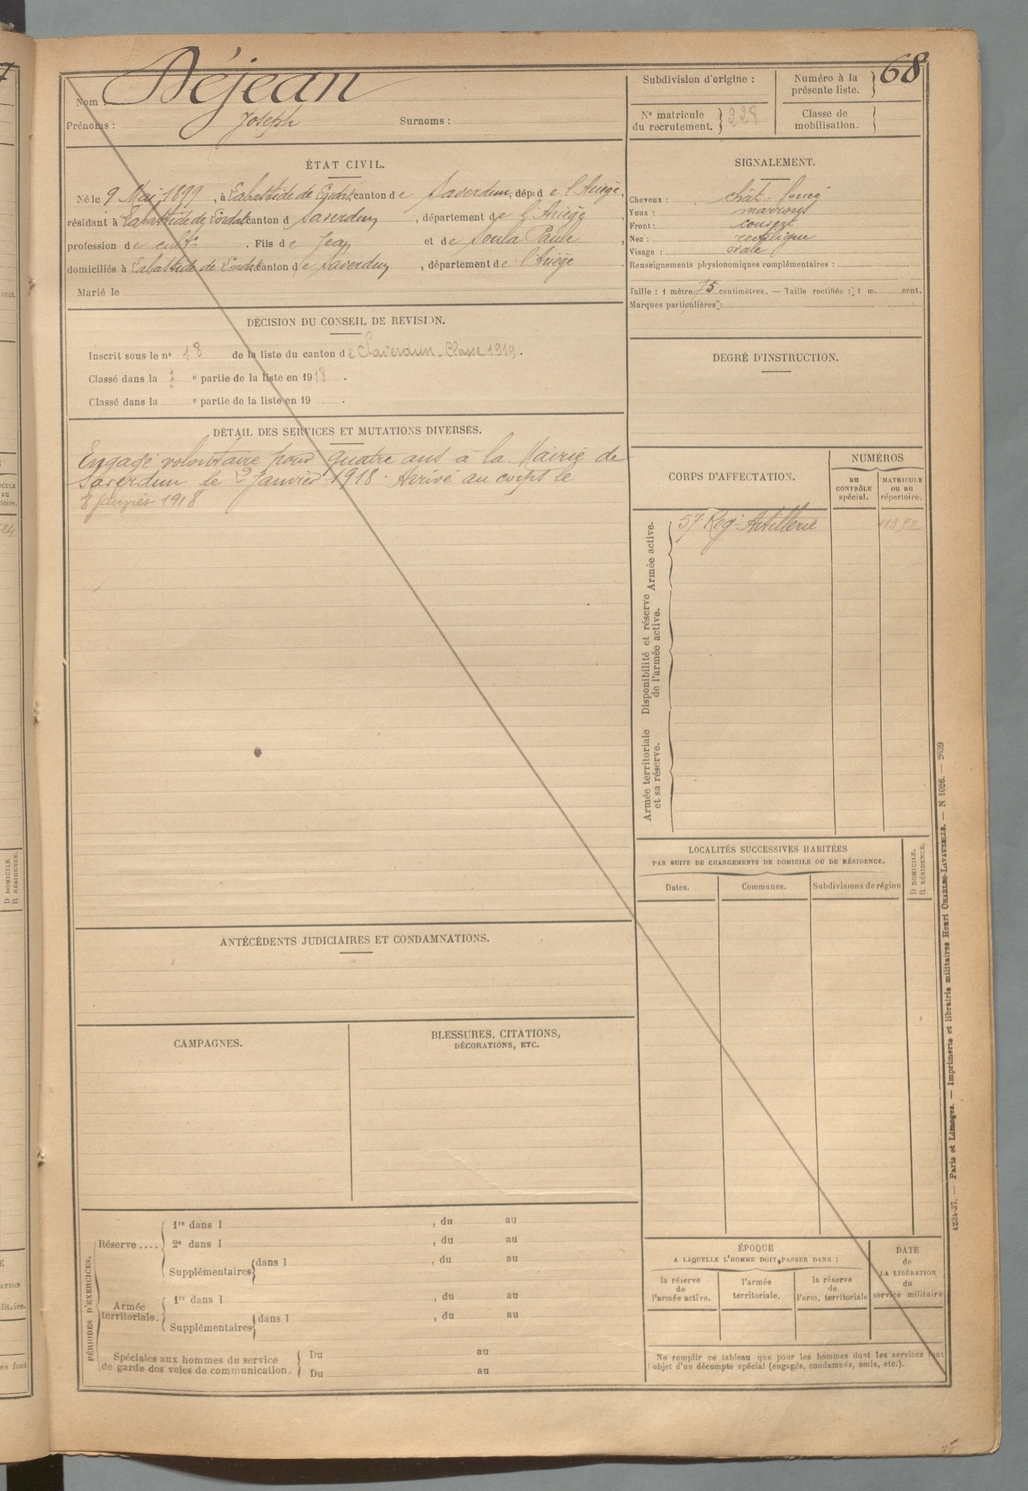 68
Nom : Déjean
Prénoms : Joseph Surnoms :
Subdivision d'origine :
Numéro à la présente liste.
Nº matricule du recrutement. 228
Classe de mobilisation.
ÉTAT CIVIL.
Né le 9 Mai 1899, à Labastide de canton de Saverdun, dépt de l'Ariège,
résidant à Labastide de canton de Saverdun, département de l'Ariège
profession de cultr. Fils de Jean et de Soula Paule,
domiciliés à Labastide de canton de Saverdun, département de l'Ariège.
Marié le
SIGNALEMENT.
Cheveux : chât. foncé
Yeux : marrons
Front : couvert
Nez : rectiligne
Visage : ovale
Renseignements physionomiques complémentaires :
Taille : 1 mètre 75 centimètres. — Taille rectifiée : 1 m. cent.
Marques particulières :
DÉCISION DU CONSEIL DE REVISION.
Inscrit sous le nº 18 de la liste du canton de Saverdun - Classe 1919.
Classé dans la e partie de la liste en 1918.
Classé dans la e partie de la liste en 19 .
DEGRÉ D'INSTRUCTION.
DÉTAIL DES SERVICES ET MUTATIONS DIVERSES.
Engagé volontaire pour quatre ans à la Mairie de
Saverdun le 2 Janvier 1918. Arrivé au corps le
8 janvier 1918
CORPS D'AFFECTATION.
NUMÉROS
DU CONTRÔLE spécial.
MATRICULE OU AU répertoire.
57 Rég. Artillerie
Armée active.
Disponibilité et réserve de l'armée active.
Armée territoriale et sa réserve.
LOCALITÉS SUCCESSIVES HABITÉES
PAR SUITE DE CHANGEMENTS DE DOMICILE OU DE RÉSIDENCE.
Dates. Communes. Subdivisions de région
D DOMICILE.
R RÉSIDENCE.
ANTÉCÉDENTS JUDICIAIRES ET CONDAMNATIONS.
CAMPAGNES.
BLESSURES, CITATIONS,
DÉCORATIONS, ETC.
PÉRIODES D'EXERCICES.
Réserve....
1re dans l , du au
2e dans l , du au
Supplémentaires dans l , du au
Armée territoriale.
1re dans l , du au
Supplémentaires dans l , du au
Spéciales aux hommes du service
de garde des voies de communication.
Du au
Du au
ÉPOQUE
A LAQUELLE L'HOMME DOIT PASSER DANS :
la réserve de l'armée active.
l'armée territoriale.
la réserve de l'arm. territoriale
DATE de LA LIBÉRATION du service militaire
Ne remplir ce tableau que pour les hommes dont les services font
l'objet d'un décompte spécial (engagés, condamnés, omis, etc.).
4234-37. — Paris et Limoges. — Imprimerie et librairie militaires Henri CHARLES-LAVAUZELLE. — N 1026. — 2639